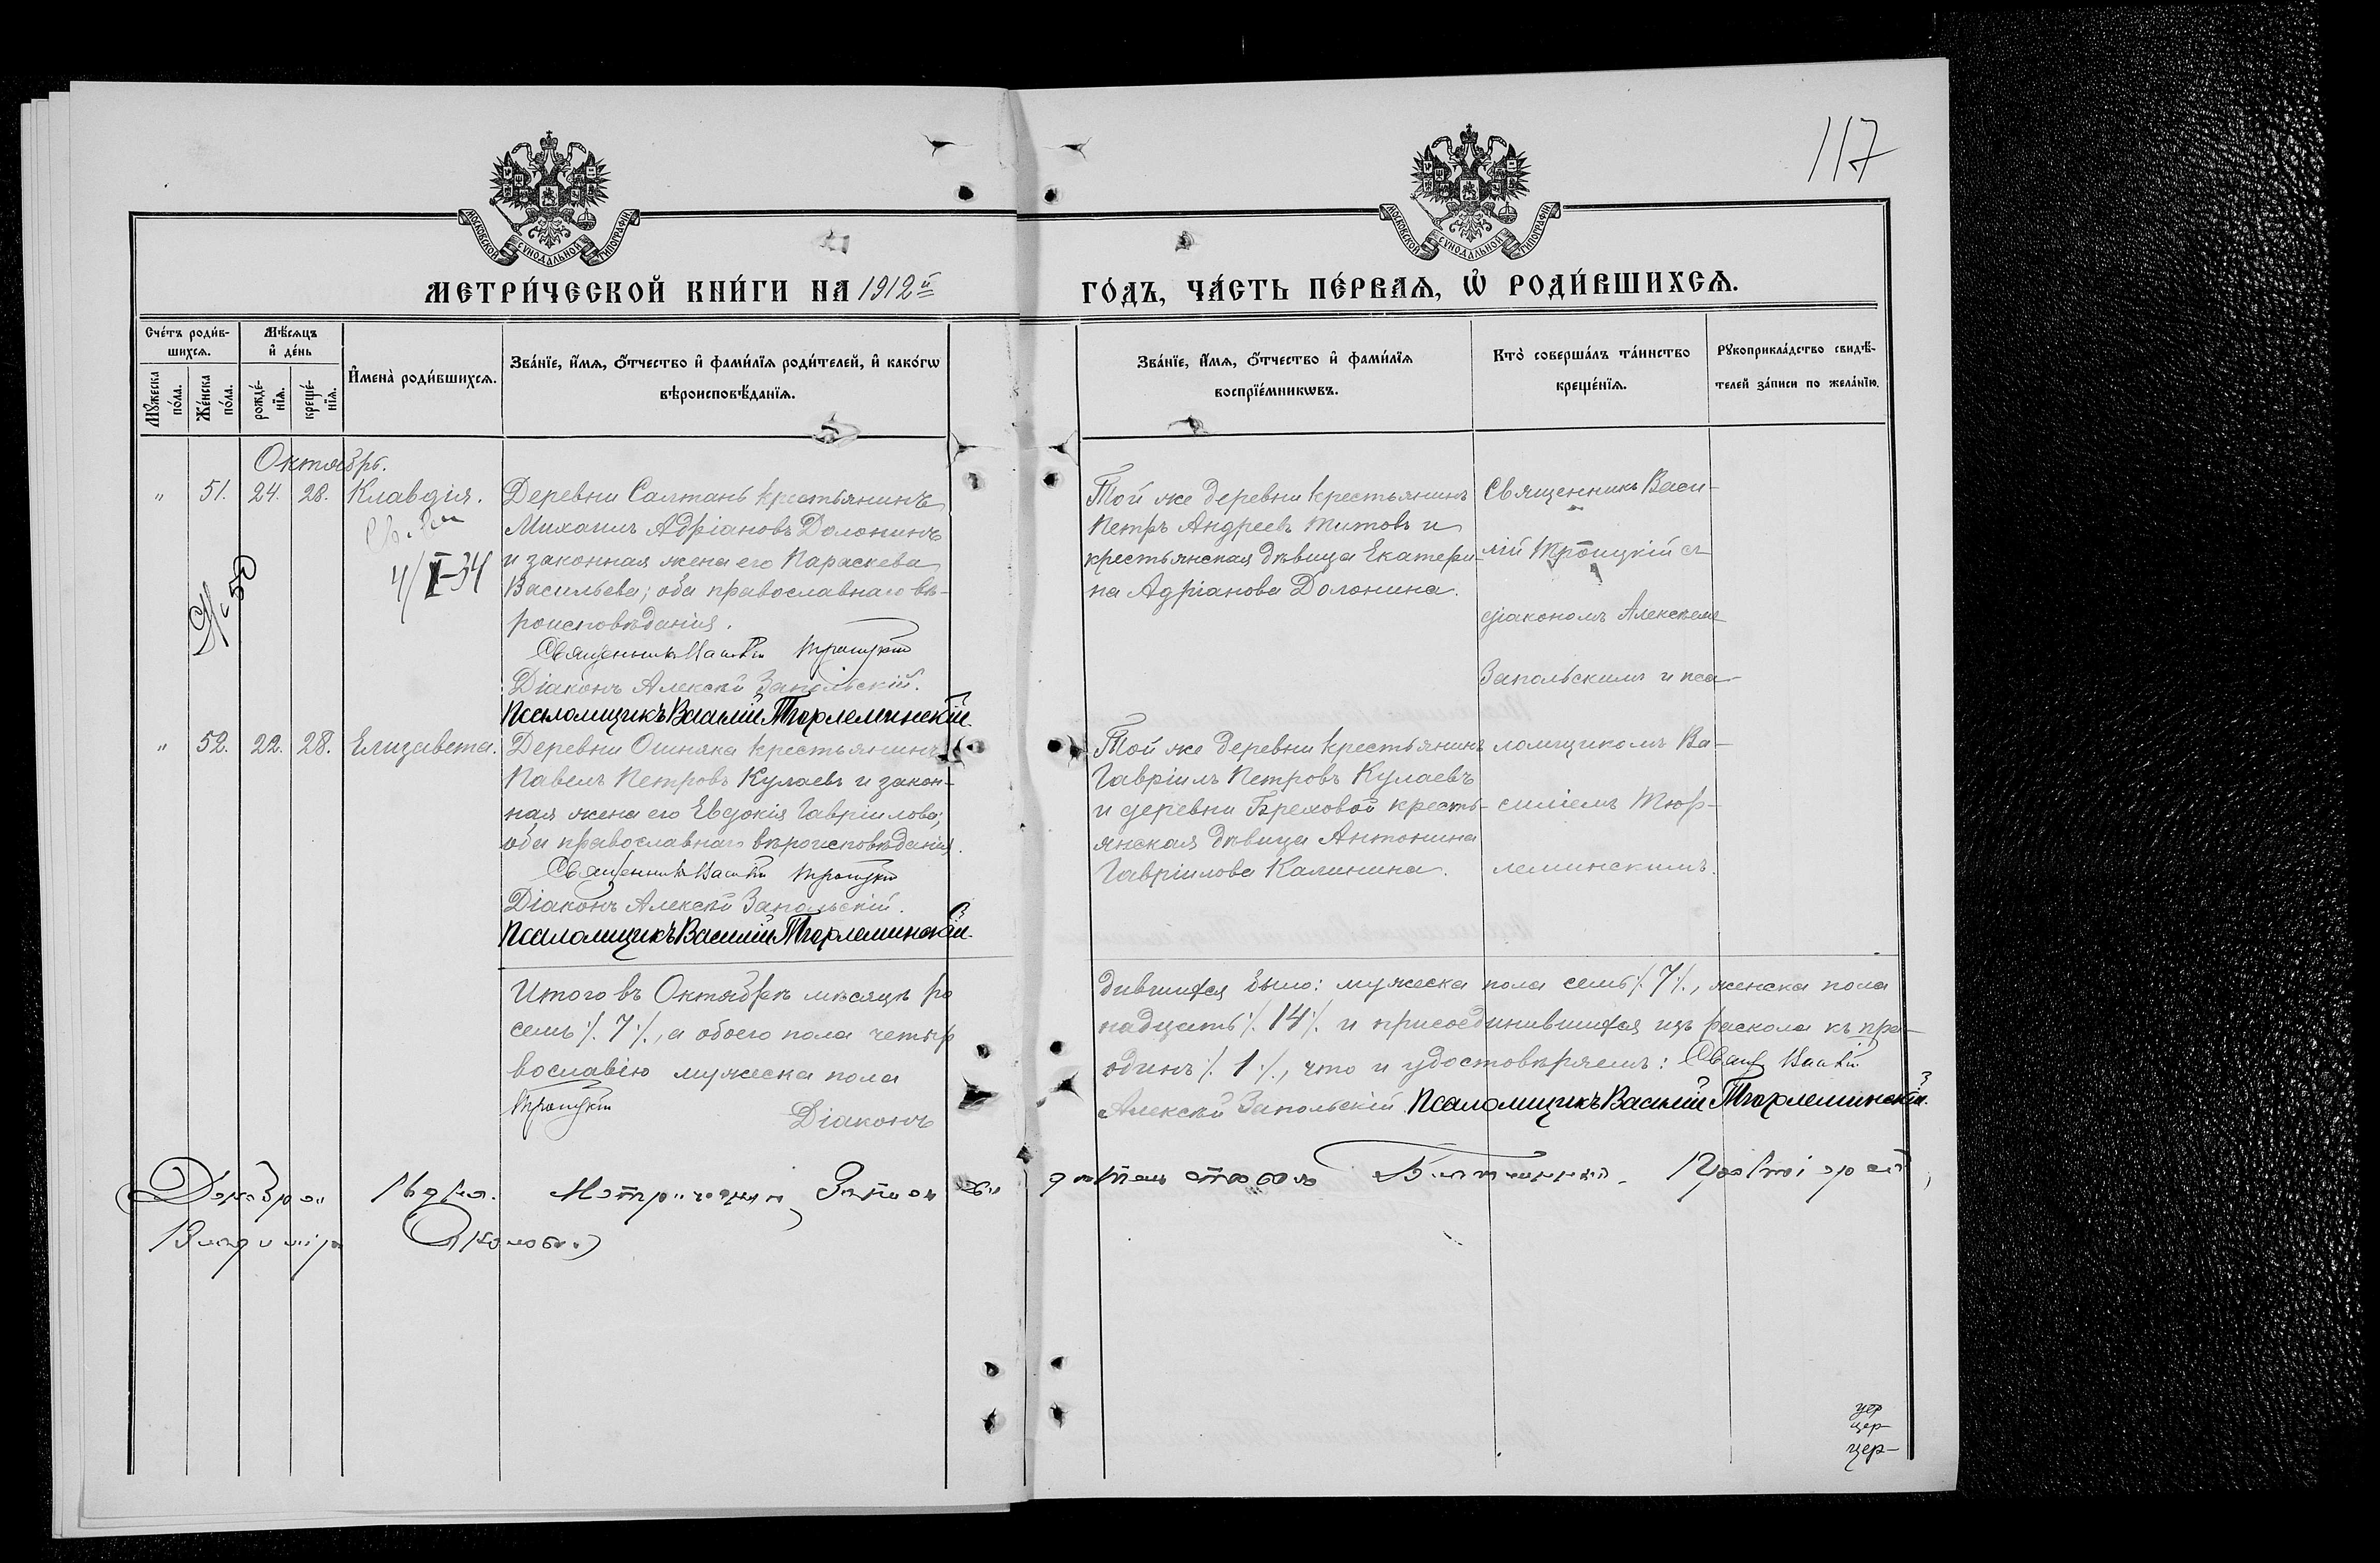 117
МОСКОВСКОЙ СѴНОДАЛЬНОЙ ТИПОГРАФІИ
МОСКОВСКОЙ СѴНОДАЛЬНОЙ ТИПОГРАФІИ
МЕТРИ́ЧЕСКОЙ КНИ́ГИ НА 1912й ГО́ДЪ, ЧА́СТЬ ПЕ́РВАѦ, Ѡ҆ РОДИ́ВШИХСѦ.
Сче́тъ роди́в-
шихсѧ.
Мꙋ́жеска по́ла.
Же́нска по́ла.
Мѣ́сѧцъ
и҆ де́нь
рожде́-
нїѧ.
креще́-
нїѧ.
И҆мена̀ роди́вшихсѧ.
Зва́нїе, и҆́мѧ, ѻ҆́тчество и҆ фами́лїѧ роди́телей, и҆ како́гѡ
вѣроисповѣ́данїѧ.
Зва́нїе, и҆́мѧ, ѻ҆́тчество и҆ фами́лїѧ
воспрїе́мникѡвъ.
Кто̀ соверша́лъ та́инство
креще́нїѧ.
Рꙋкоприкла́дство свидѣ́-
телей за́писи по жела́нїю.
Октябрь.
" 51. 24. 28. Клавдія.
4/I-34
Деревни Салтанъ крестьянинъ
Михаилъ Адріановъ Долонинъ
и законная жена его Параскева
Васильева; оба православнаго вѣ-
роисповѣданія.
Священникъ Василій Троицкій
Діаконъ Алексѣй Запольскій.
Псаломщикъ Василій Тюрлеминскій.
Той же деревни крестьянинъ
Петръ Андреевъ Титовъ и
крестьянская дѣвица Екатери-
на Адріанова Долонина.
Священникъ Васи-
лій Троицкій съ
діакономъ Алексѣемъ
Запольскимъ и пса-
ломщикомъ Ва-
силіемъ Тюр-
леминскимъ.
" 52. 22. 28. Елизавета.
Деревни Ошняка крестьянинъ
Павелъ Петровъ Кулаевъ и закон-
ная жена его Евдокія Гавріилова;
оба православнаго вѣроисповѣданія.
Священникъ Василій Троицкій
Діаконъ Алексѣй Запольскій.
Псаломщикъ Василій Тюрлеминскій.
Той же деревни крестьянинъ
Гавріилъ Петровъ Кулаевъ
и деревни Бреховой кресть-
янская дѣвица Антонина
Гавріилова Калинина.
Итого въ Октябрѣ мѣсяцѣ ро дившихся было: мужеска пола семь ⁒ 7 ⁒, женска пола
семь ⁒ 7 ⁒, а обоего пола четыр надцать ⁒ 14 ⁒ и присоединившихся изъ раскола къ пра-
вославію мужеска пола одинъ ⁒ 1 ⁒, что и удостовѣряемъ: Свящ. Василій
Троицкій Діаконъ Алексѣй Запольскій. Псаломщикъ Василій Тюрлеминскій.
Декабря дня. Метрическия Записи Протоіерей
Владиміръ
цер
цер-
цер-